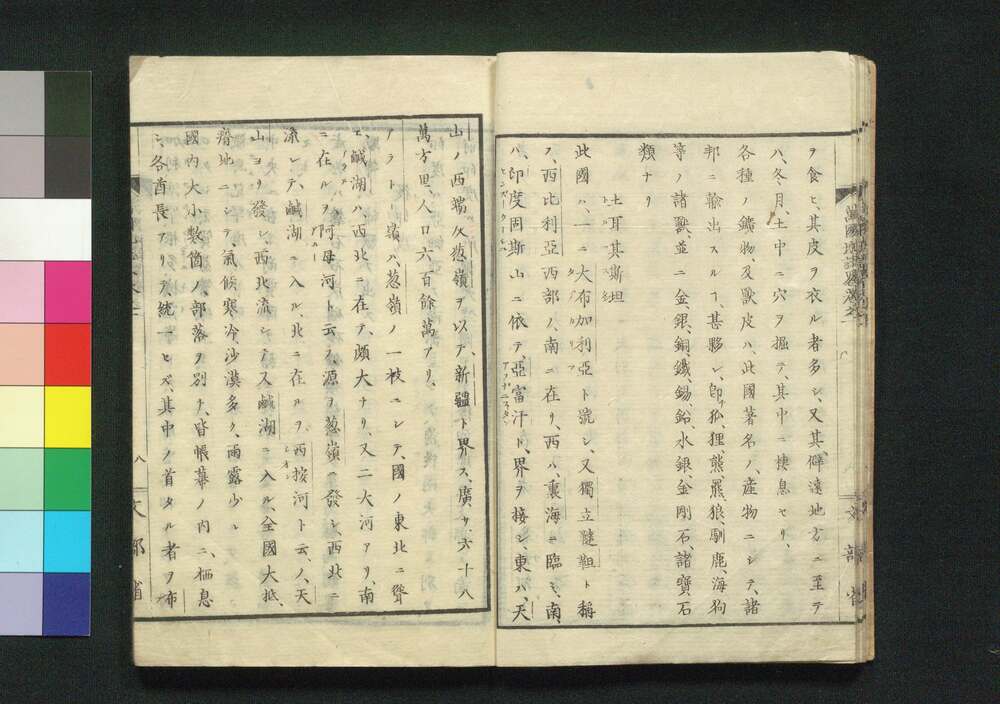 ヲ食ヒ、其皮ヲ衣ル者多シ、又其僻遠地方ニ至テ
ハ、冬月、土中ニ穴ヲ掘テ、其中ニ棲息セリ、
各種ノ鑛物、及獸皮ハ、此國著名ノ産物ニシテ、諸
邦ニ輸出スルヿ、甚夥シ、即狐、狸、熊、羆、狼、馴鹿、海狗
等ノ諸獸、並ニ金、銀、銅、鐵、錫、鉛、水銀、金剛石、諸寶石
類ナリ
土耳其斯坦
此國ハ、一ニ大布加利亞ト號シ、又獨立韃靼ト稱
ス、西比利亞西部ノ、南ニ在リ、西ハ、裏海ニ臨ミ、南
ハ、印度固斯山ニ依テ、亞富汗ト、界ヲ接シ、東ハ、天
山ノ西端、及葱嶺ヲ以テ、新疆ト界ス、廣サ、六十八
萬方里、人口六百餘萬アリ、
ノラトー嶺ハ、葱嶺ノ一枝ニシテ、國ノ東北ニ聳
エ、鹹湖ハ、西北ニ在テ、頗大ナリ、又二大河アリ、南
ニ在ルヲ、阿母河ト云フ、源ヲ葱嶺ニ發シ、西北ニ
流レテ、鹹湖ニ入ル、北ニ在ルヲ、西按河ト云フ、天
山ヨリ發シ、西北流シテ、又鹹湖ニ入ル、全國大抵、
瘠地ニシテ、氣候寒冷、沙漠多ク、雨露少シ
國内大小數箇ノ、部落ヲ別チ、皆帳幕ノ内ニ、栖息
シ、各酋長アリテ、統一セズ、其中ノ首タル者ヲ、布
八
文部省